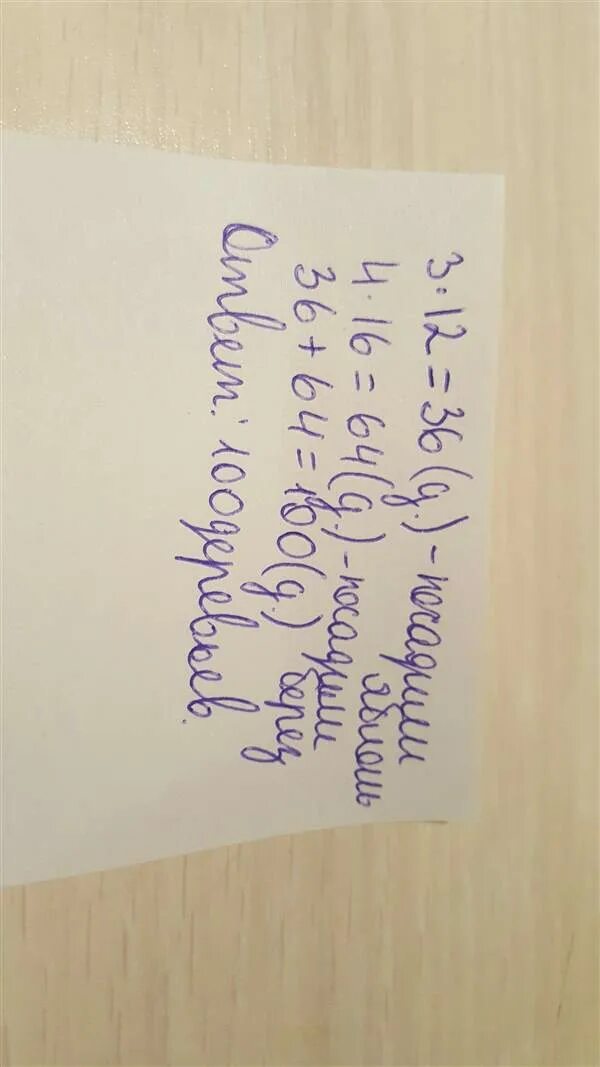 3·12=36(д.)-посадили
яблонь
4·16=64(д.)-посадили
36+64=100(д.) берез
Ответ: 100 деревьев.